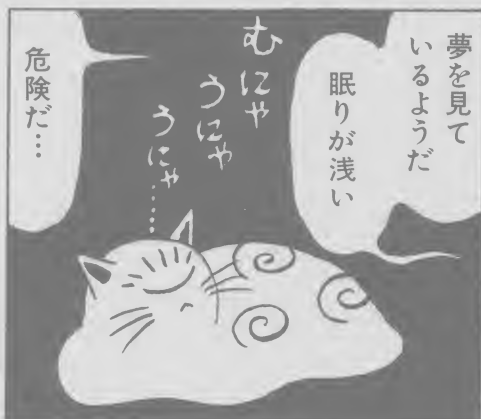 夢を見て
いるようだ
眠りが浅い
むにゃ
うにゃ
うにゃ……
危険だ…